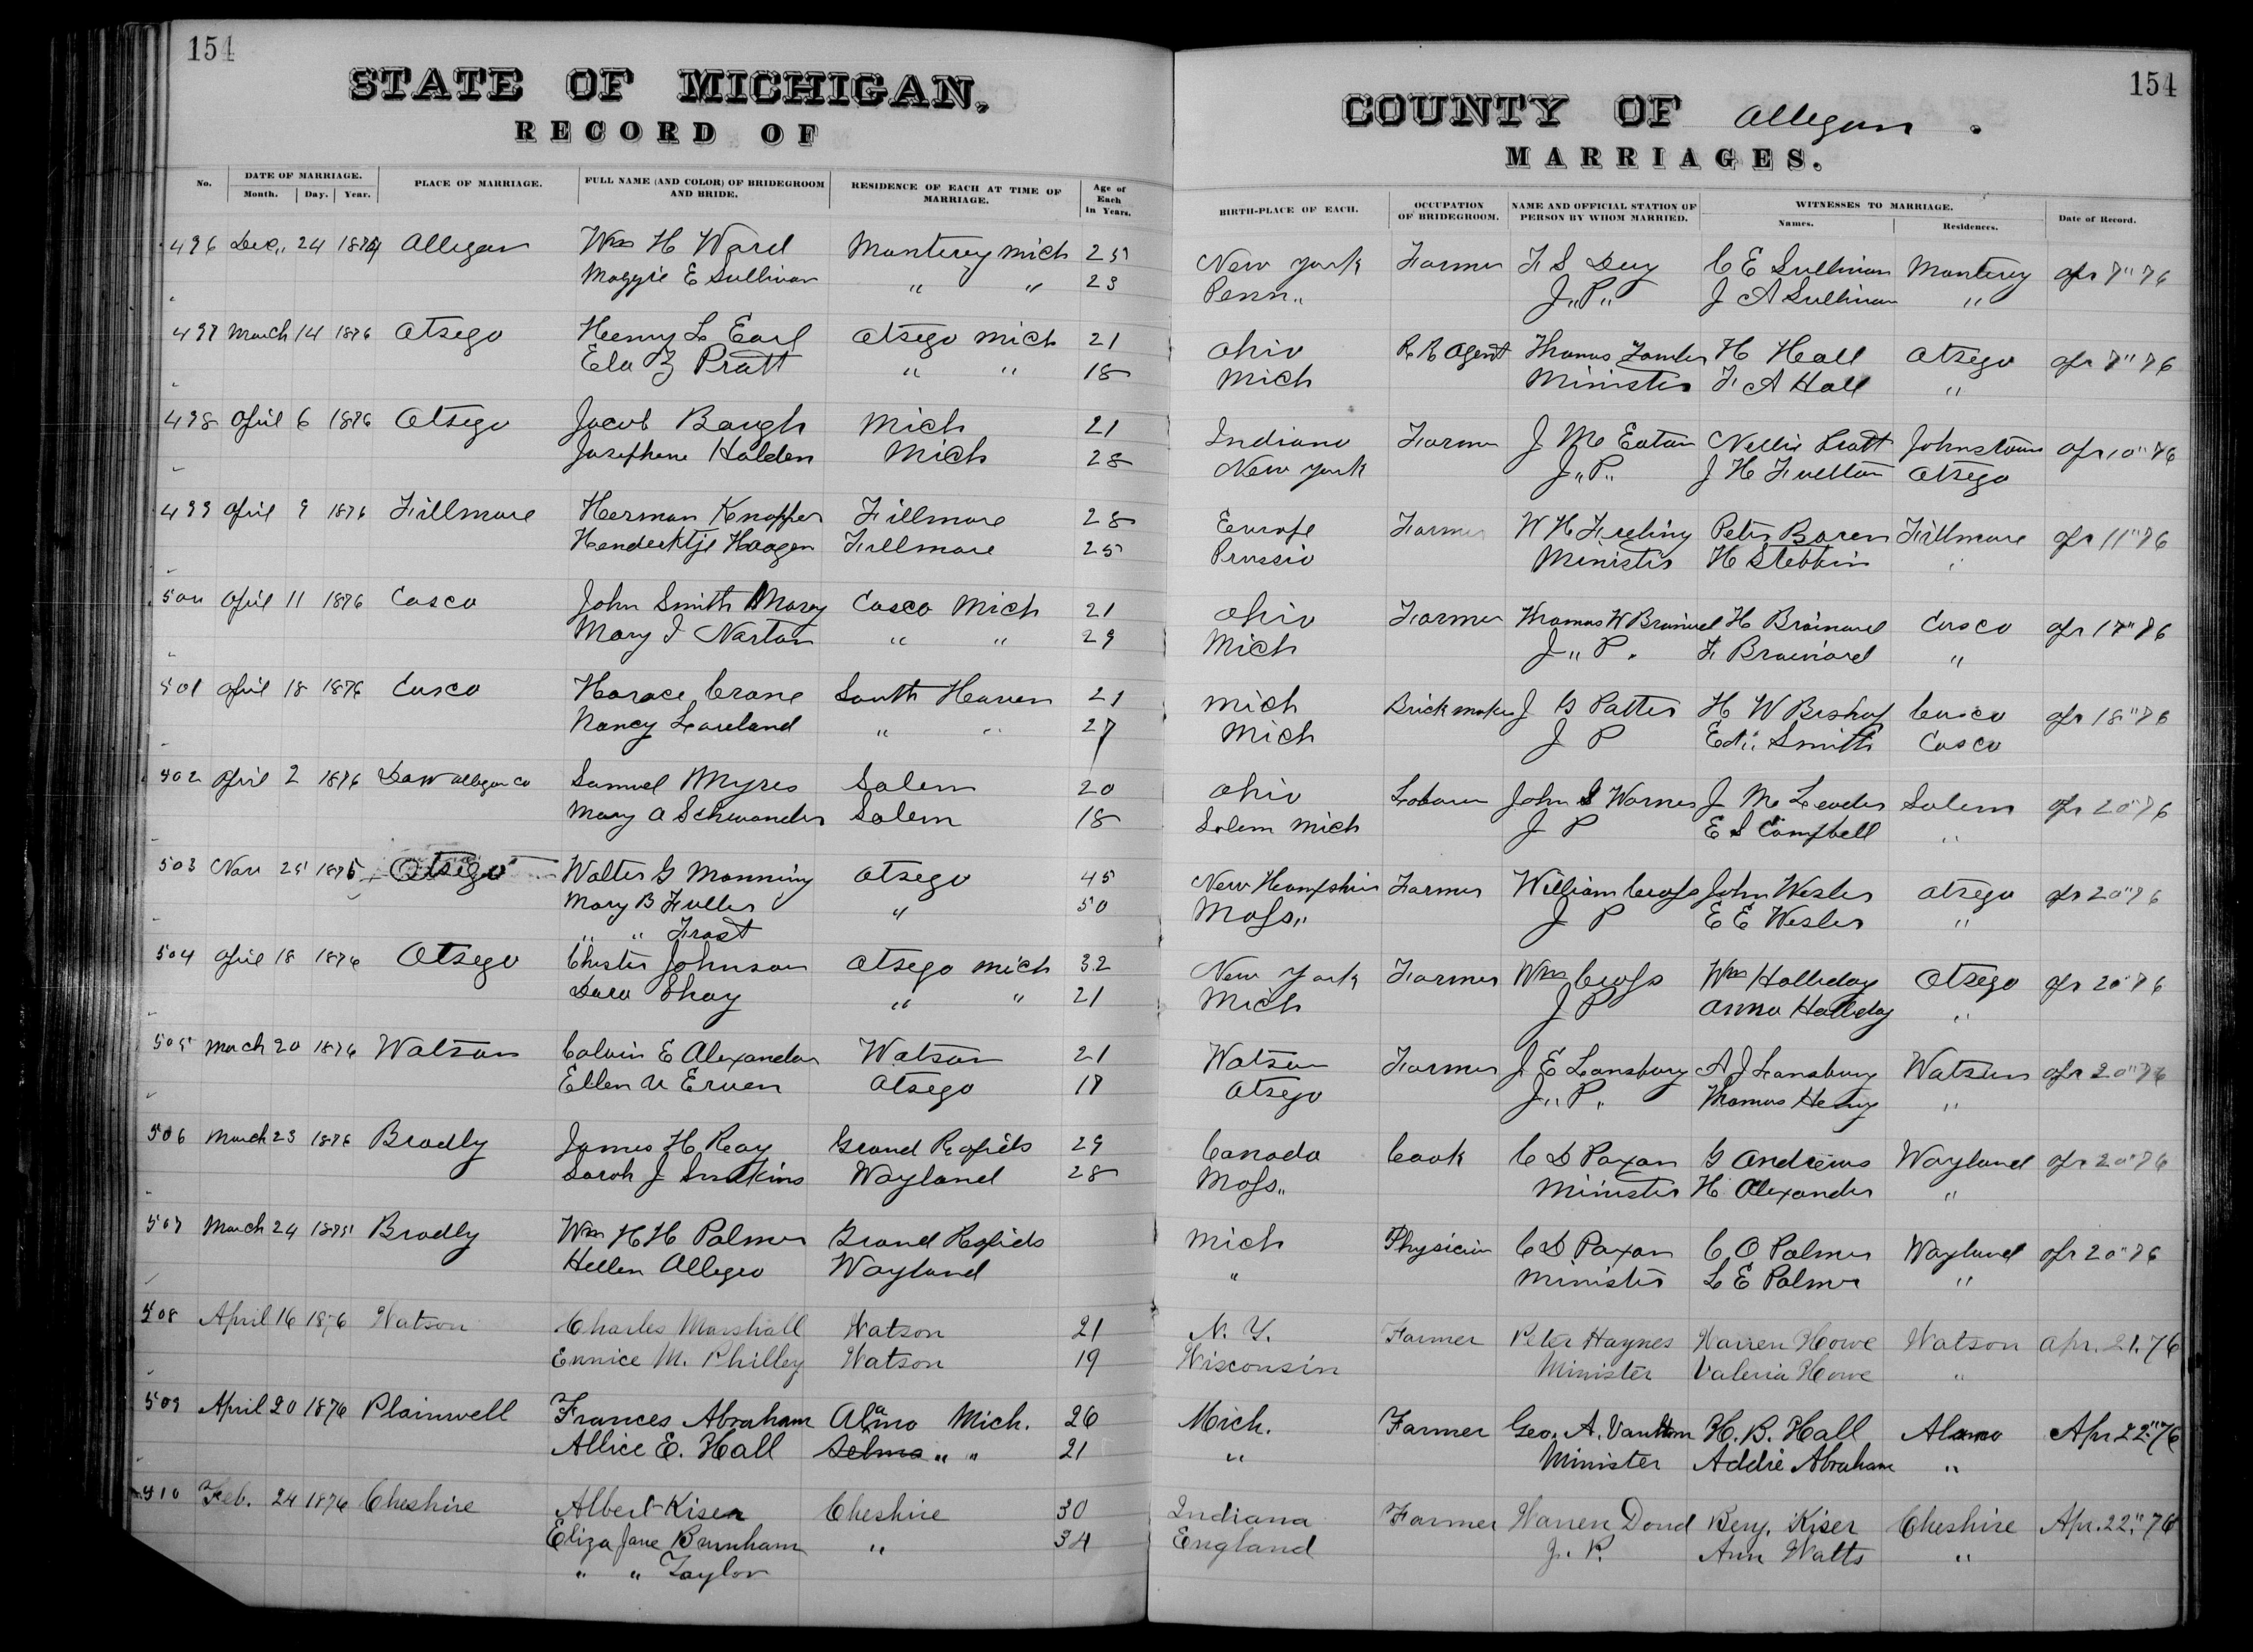 154
154
STATE OF MICHIGAN.
COUNTY OF Allegan.
RECORD OF
MARRIAGES.
No. DATE OF MARRIAGE. Month. Day. Year. PLACE OF MARRIAGE. FULL NAME (AND COLOR) OF BRIDEGROOM AND BRIDE. RESIDENCE OF EACH AT TIME OF MARRIAGE. Age of Each in Years. BIRTH-PLACE OF EACH. OCCUPATION OF BRIDEGROOM. NAME AND OFFICIAL STATION OF PERSON BY WHOM MARRIED. WITNESSES TO MARRIAGE. Names. Residences. Date of Record.
496 Dec,, 24 1874 Allegan Wm H Ward Monterey Mich 25 New York Farmer F S Day C E Sullivan Monterey Apr 7" 76
Maggie E Sullivan " " 23 Penn,, J,,P,, J A Sullivan "
497 March 14 1876 Otsego Henry L Earl Otsego Mich 21 Ohio R R Agent Thomas H Hall Otsego Apr 7" 76
Ela Z Pratt " " 18 Mich Minister F A Hall "
498 April 6 1876 Otsego Jacob Baugh Mich 21 Indiana Farmer J M Eaton Nellie Pratt Johnstown Apr 10" 76
Josephene Holden Mich 28 New York J,,P,, J H Fuller Otsego
499 April 9 1876 Fillmore Herman Knopper Fillmore 28 Europe Farmer W H Peter Boren Fillmore Apr 11" 76
Henderktje Haagen Fillmore 25 Prussia Minister H Stebbin "
500 April 11 1876 Casco John Smith Morey Casco Mich 21 Ohio Farmer Thomas W H Brainard Casco Apr 17" 76
Mary J Norton " " 29 Mich J,,P. F Brainard "
501 April 18 1876 Casco Horace Crane South Heaven 21 Mich Brickmaker J G Patter H W Bishop Casco Apr 18" 76
Nancy Loveland " " 27 Mich J P Smith Casco
502 April 2 1876 Dorr Allegan Co Samuel Myres Salem 20 Ohio Laborer John S Warner J M Leader Salem Apr 20" 76
Mary A Schwander Salem 18 Salem Mich J P E S Campbell "
503 Nov 25 1875 Otsego Walter G Manning Otsego 45 New Hampshire Farmer William Cross John Wesler Otsego Apr 20" 76
Mary B Fuller " 50 Mass,, J P E E Wesler "
" " Frost
504 April 18 1876 Otsego Chester Johnson Otsego Mich 32 New York Farmer Wm Cross Wm Holliday Otsego Apr 20" 76
Shay " " 21 Mich J P Anna Holliday "
505 March 20 1876 Watson Calvin E Alexander Watson 21 Watson Farmer J E Lansbury A J Lansbury Watson Apr 20" 76
Ellen Erven Otsego 17 Otsego J,,P,, Thomas Henry "
506 March 23 1876 Bradly James H Ray Grand Rapids 29 Canada Cook C D Paxon G Andrews Wayland Apr 20" 76
Sarah J Wayland 28 Mass,, Minister H Alexander "
507 March 24 1875 Bradly Wm H H Palmer Grand Rapids Mich Physician C D Paxon C O Palmer Wayland Apr 20" 76
Hellen Allegeo Wayland " Minister L E Palmer "
508 April 16 1876 Watson Charles Marshall Watson 21 N. Y. Farmer Peter Haynes Warren Howe Watson Apr. 21. 76
Eunice M. Philley Watson 19 Wisconsin Minister Valeria Howe "
509 April 20 1876 Plainwell Frances Abraham Alamo Mich. 26 Mich. Farmer Geo. A. H. B. Hall Alamo Apr. 22." 76
Allice E. Hall Selma " " 21 " Minister Addie Abraham "
510 Feb. 24 1876 Cheshire Albert Kiser Cheshire 30 Indiana Farmer Warren Dond Benj. Kiser Cheshire Apr. 22." 76
Eliza Jane Burnham " 34 England J. P. Ann Watts "
" " Taylor